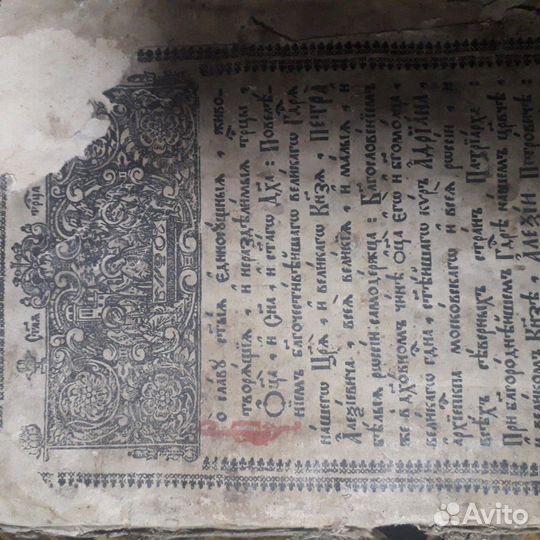 Стаѧ трⷪ҇ца
Во славꙋ ст҃ыѧ є҆диносꙋщныѧ, живо-
творѧщїѧ, и нераздѣлимыѧ трⷪ҇цы,
Ѻц҃а и Сн҃а, и ст҃агѡ Дх҃а: Повелѣ-
нїемъ благочестивѣйшагѡ великагѡ Гдⷭ҇рѧ
нашегѡ Цр҃ѧ, и великагѡ Кнѧзѧ, Петра
Алеѯїевича, всеѧ великїѧ, и малыѧ, и
бѣлыѧ рѡссїи самодержца: Благословенїемъ
же в дх҃овномъ чинѣ, ѻц҃а є҆гѡ и бг҃омольца
великагѡ гдⷭ҇ина, ст҃ѣйшагѡ кѵръ Адрїана,
архїепⷭ҇кпа московскагѡ и всеѧ рѡссїи, и
всѣхъ сѣверныхъ странъ Патрїарха:
При благороднѣйшемъ Гдⷭ҇рѣ нашемъ цр҃евичѣ
и великомъ Кнѧзѣ, Алеѯїи Петровичѣ:
Avito